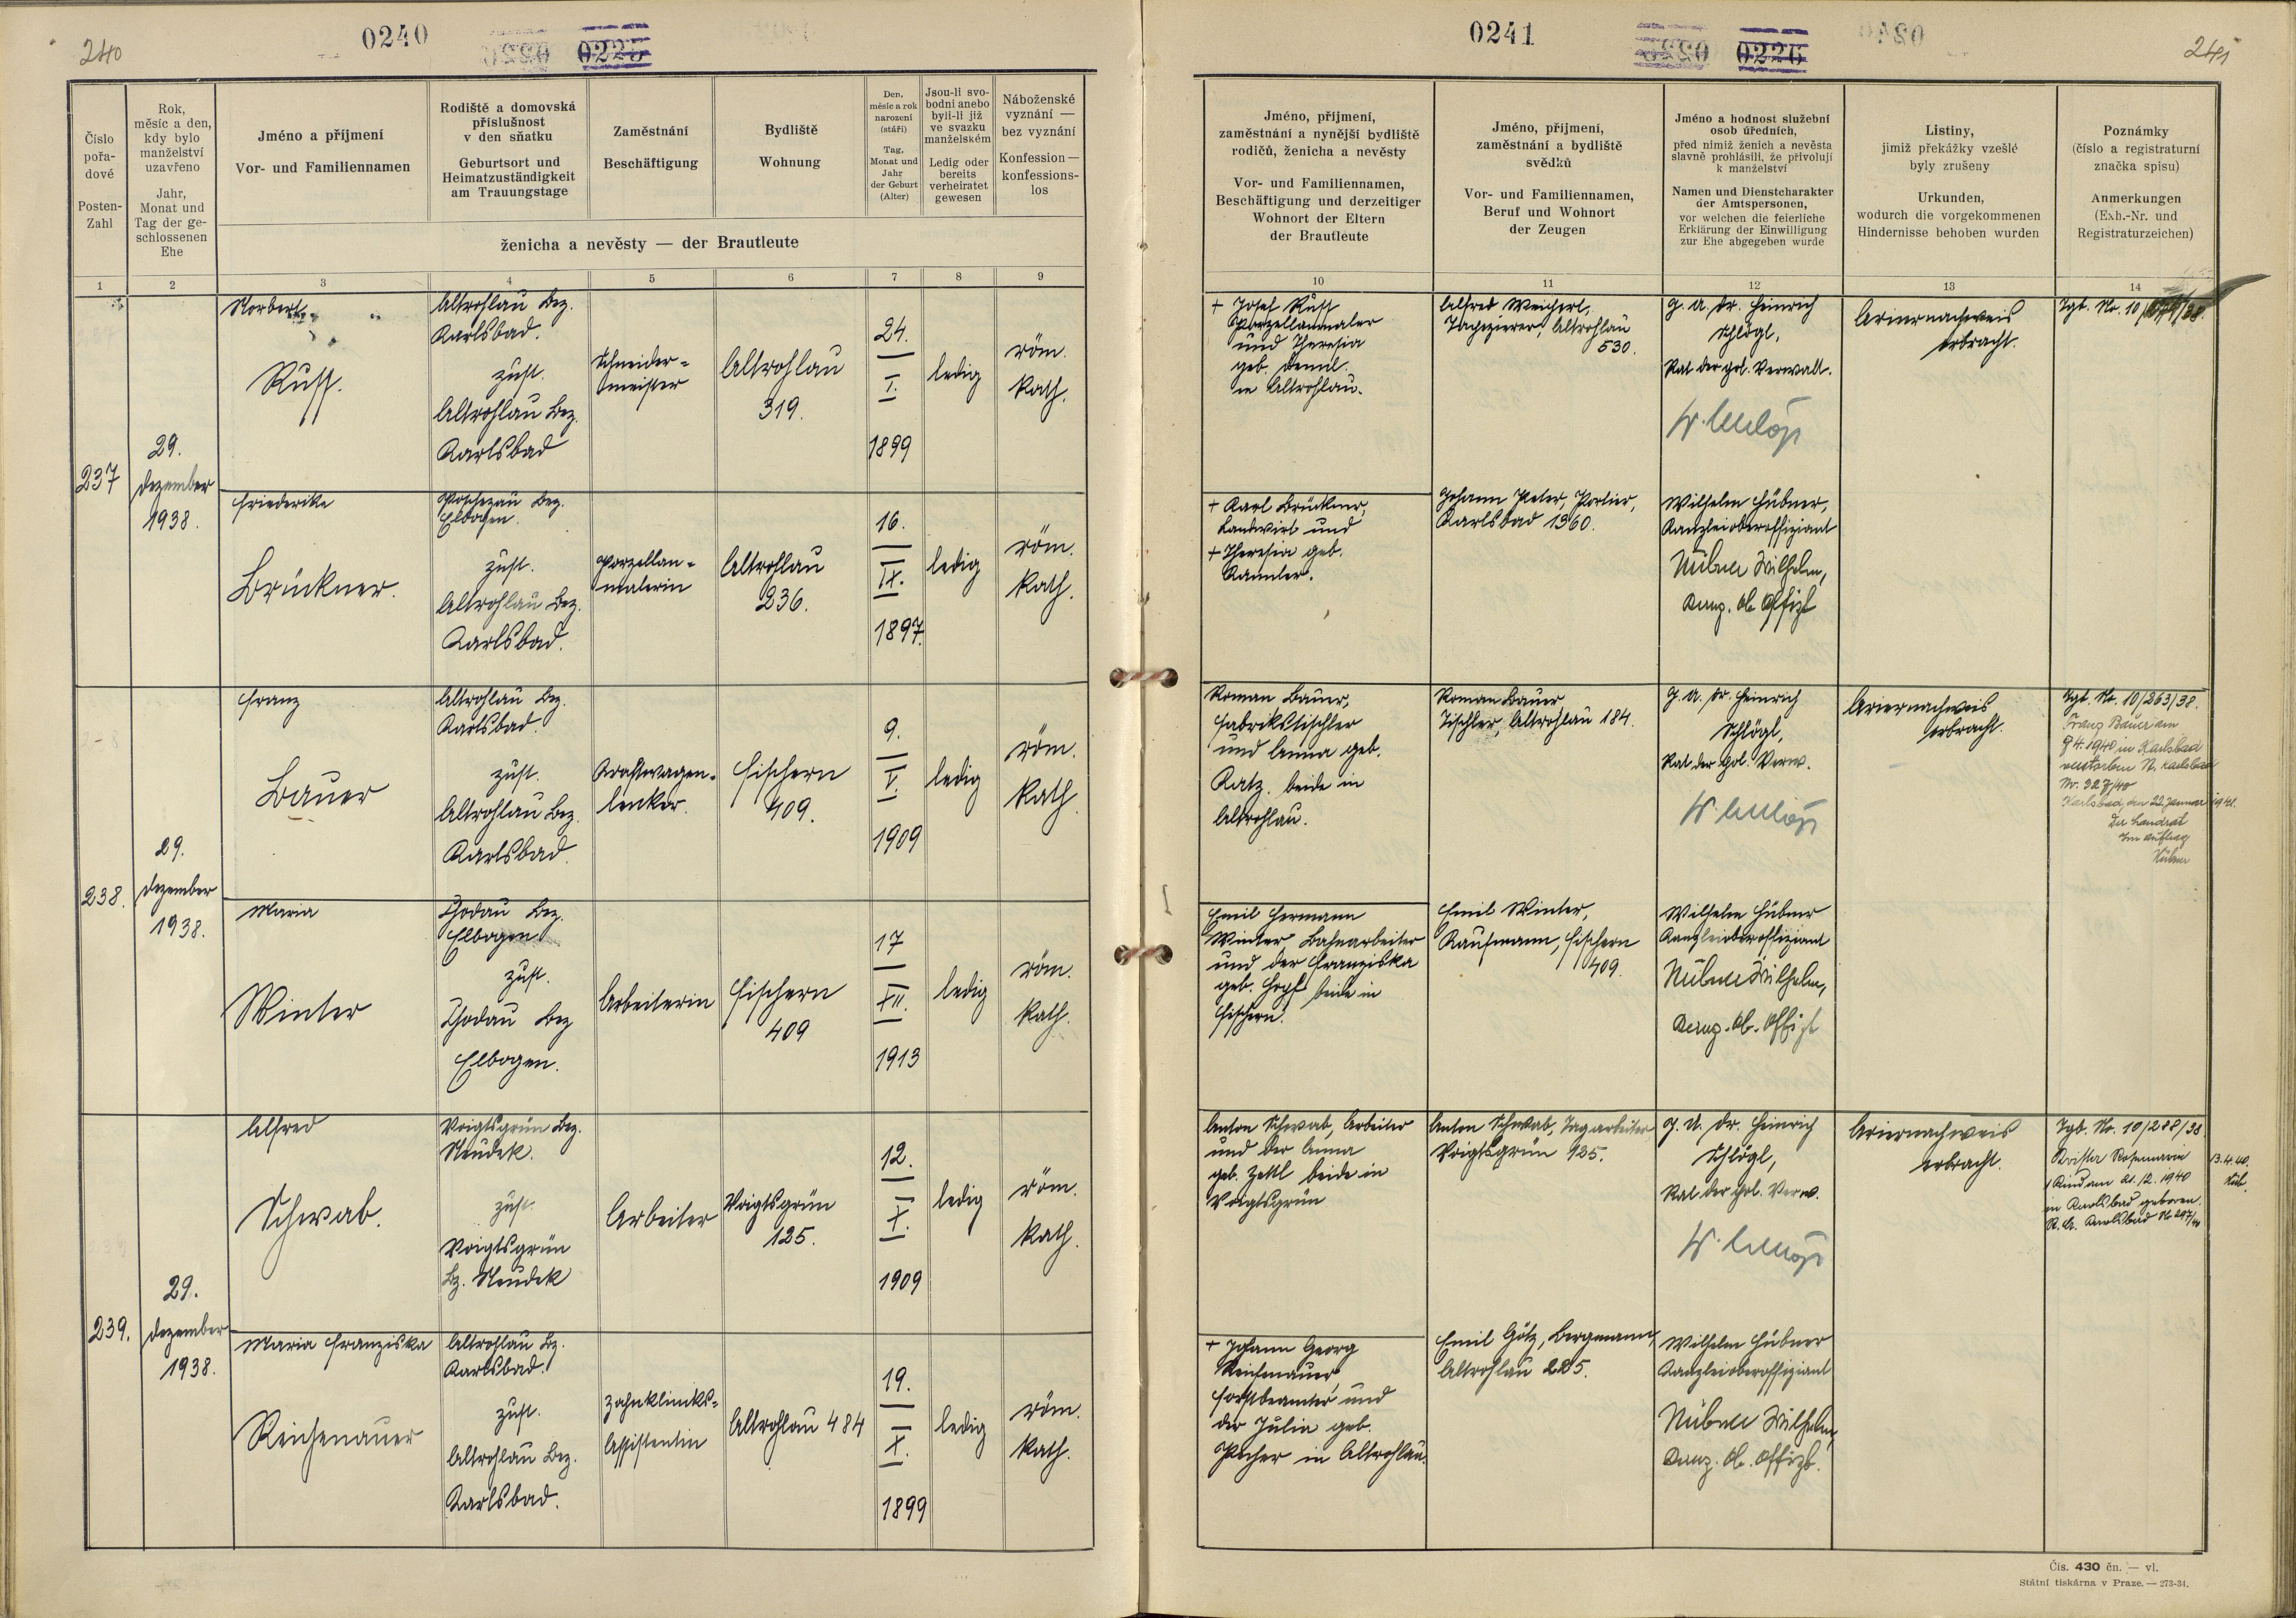 240
0240
0225
Číslo pořa-dové
Posten-Zahl
Rok, měsíc a den, kdy bylo manželství uzavřeno
Jahr, Monat und Tag der ge-schlossenen Ehe
Jméno a příjmení
Vor- und Familiennamen
Rodiště a domovská příslušnost v den sňatku
Geburtsort und Heimatzuständigkeit am Trauungstage
Zaměstnání
Beschäftigung
Bydliště
Wohnung
Den, měsíc a rok narození (stáří)
Tag, Monat und Jahr der Geburt (Alter)
Jsou-li svo-bodni anebo byli-li již ve svazku manželském
Ledig oder bereits verheiratet gewesen
Náboženské vyznání — bez vyznání
Konfession — konfessions-los
ženicha a nevěsty — der Brautleute
1 2 3 4 5 6 7 8 9
237
29.
Dezember
1938.
Norbert
Russ.
Altrohlau Bez.
Karlsbad.
zust.
Altrohlau Bez.
Karlsbad
Schneider-
meister
Altrohlau
319.
24.
I.
1899
ledig
röm.
kath.
Friederike
Brückner.
Poschezau Bez.
Elbogen.
zust.
Altrohlau Bez.
Karlsbad.
Porzellan-
malerin
Altrohlau
236.
16.
IX.
1897.
ledig
röm.
kath.
238.
29.
Dezember
1938.
Franz
Bauer
Altrohlau Bez.
Karlsbad.
zust.
Altrohlau Bez.
Karlsbad.
Kraftwagen-
lenker.
Fischern
409.
9.
V.
1909
ledig
röm.
kath.
Maria
Winter
Chodau Bez.
Elbogen
zust.
Chodau Bez
Elbogen.
Arbeiterin
Fischern
409
17
XII.
1913
ledig
röm.
kath.
239.
29.
Dezember
1938.
Alfred
Schwab.
Voigtsgrün Bez.
Neudek.
zust.
Voigtsgrün
Bz. Neudek
Arbeiter
Voigtsgrün
125.
12.
X.
1909
ledig
röm.
kath.
Maria Franziska
Reichenauer
Altrohlau Bz.
Karlsbad.
zust.
Altrohlau Bez.
Karlsbad.
Zahnkliniks-
assistentin
Altrohlau 484
19.
X.
1899
ledig
röm.
kath.
0241
0226
241
Jméno, příjmení, zaměstnání a nynější bydliště rodičů, ženicha a nevěsty
Vor- und Familiennamen, Beschäftigung und derzeitiger Wohnort der Eltern der Brautleute
Jméno, příjmení, zaměstnání a bydliště svědků
Vor- und Familiennamen, Beruf und Wohnort der Zeugen
Jméno a hodnost služební osob úředních, před nimiž ženich a nevěsta slavně prohlásili, že přivolují k manželství
Namen und Dienstcharakter der Amtspersonen, vor welchen die feierliche Erklärung der Einwilligung zur Ehe abgegeben wurde
Listiny, jimiž překážky vzešlé byly zrušeny
Urkunden, wodurch die vorgekommenen Hindernisse behoben wurden
Poznámky (číslo a registraturní značka spisu)
Anmerkungen (Exh.-Nr. und Registraturzeichen)
10 11 12 13 14
+ Josef Russ
Porzellanmaler
und Theresia
geb. Deml.
in Altrohlau.
Alfred Weichert,
Tapezierer, Altrohlau
530.
J. U. Dr. Heinrich
Schlögl,
Rat der pol. Verwalt.
Ariernachweis
erbracht.
Tgb. Nr. 10/
+ Karl Brückner,
Landwirt und
+ Theresia geb.
Johann Peter, Portier,
Karlsbad 1360.
Wilhelm Hübner,
Kanzleioberoffiziant
Hübner Wilhelm,
Kanz. Ob. Offizt
Roman Bauer,
Fabrikstischler
und Anna geb.
Katz. beide in
Altrohlau.
Roman Bauer
Tischler, Altrohlau 184.
J. U. Dr. Heinrich
Schlögl,
Rat der pol. Verw.
Ariernachweis
erbracht.
Tgb. Nr. 10/263/38.
Franz Bauer am
9.4.1940 in Karlsbad
verstorben St. Karlsbad
Nr. 327/40
Karlsbad, den 22. Januar 1941.
Der Landrat
Im Auftrag
Hübner
Emil Hermann
Winter, Bahnarbeiter
und der Franziska
geb. Hopf beide in
Fischern.
Emil Winter,
Kaufmann, Fischern
409.
Wilhelm Hübner
Kanzleioberoffiziant
Hübner Wilhelm,
Kanz. Ob. Offizt
Anton Schwab, Arbeiter
und der Anna
geb. Zettl beide in
Voigtsgrün
Anton Schwab, Tagarbeiter
Voigtsgrün 125.
J. U. Dr. Heinrich
Schlögl,
Rat der pol. Verw.
Ariernachweis
erbracht.
Tgb. Nr. 10/288/38
Rosemarie
1 Kind am 21.12.1940
in Karlsbad geboren.
St. A. Karlsbad
+ Johann Georg
Reichenauer
Forstbeamter und
der Julia geb.
Pecher in Altrohlau.
Emil Götz, Bergmann,
Altrohlau 225.
Wilhelm Hübner
Kanzleioberoffiziant
Hübner Wilhelm,
Kanz. Ob. Offizt.
Čís. 430 čn. — vl.
Státní tiskárna v Praze. — 273-34.